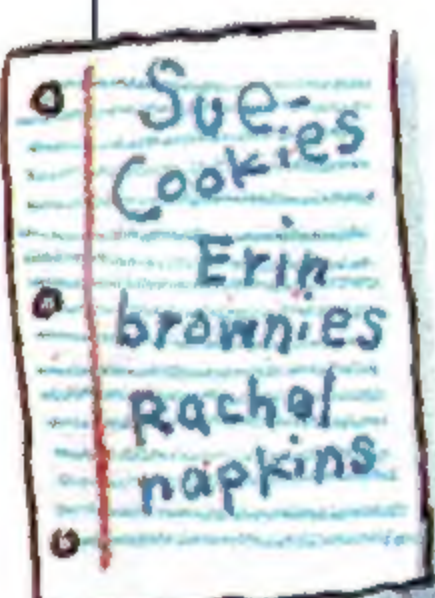 Sue-
Cookies
Erin
brownies
Rachel
napkins